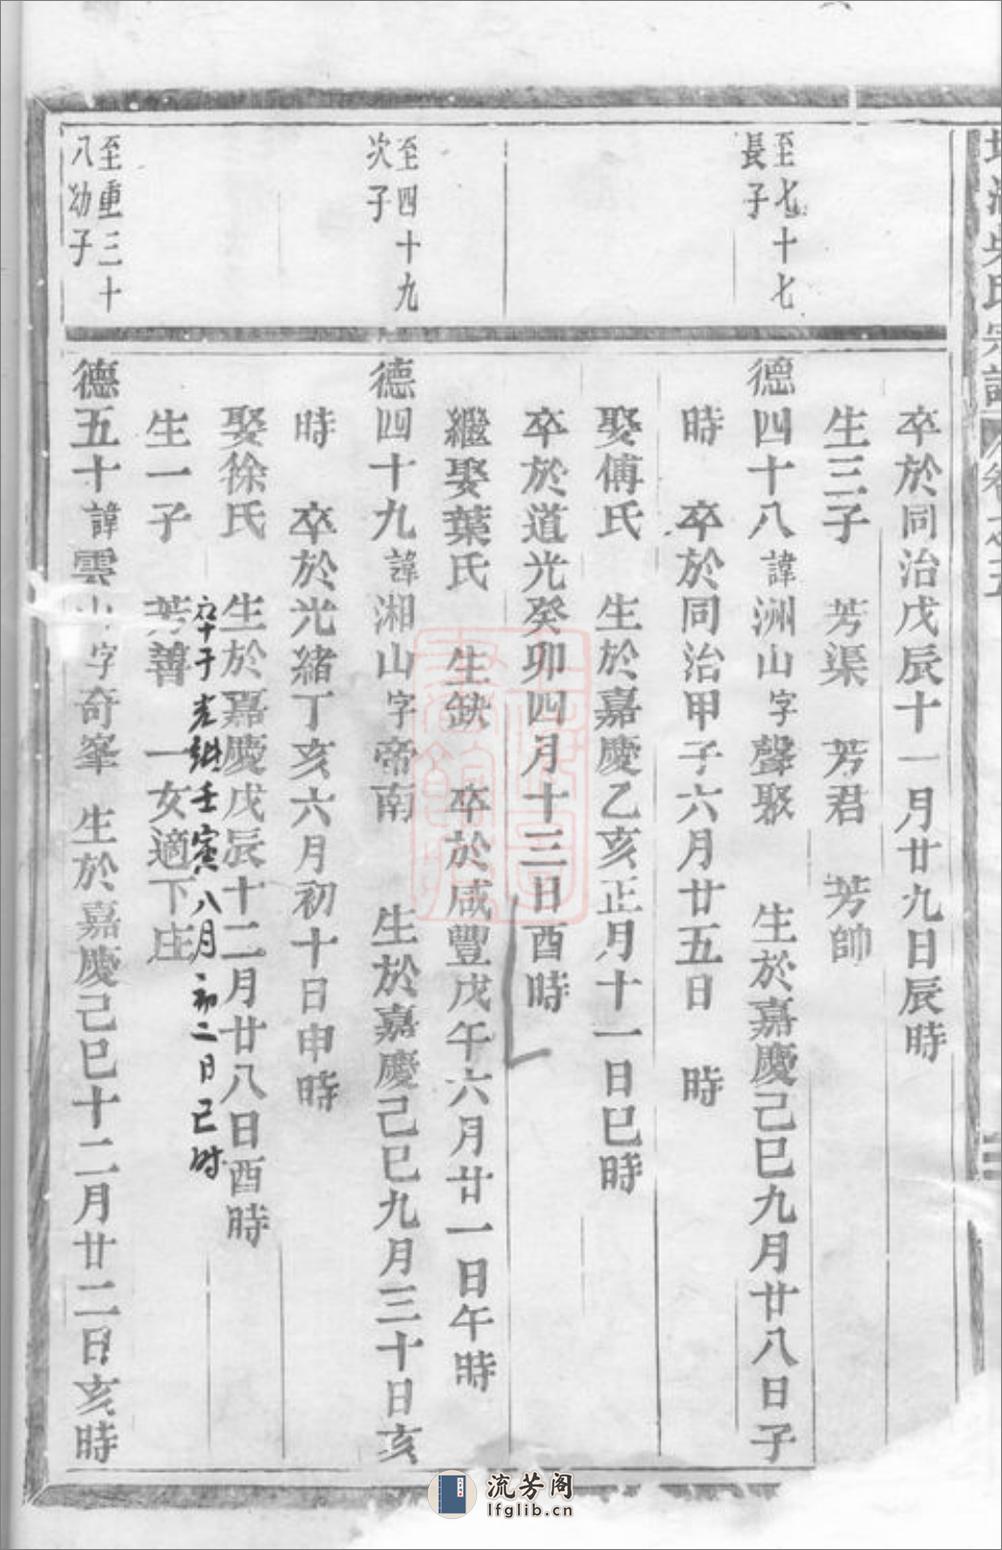 氏宗譜
至七十七
長子
至四十九
次子
至重三十
八幼子
卒於同治戊辰十一月廿九日辰時
生三子 芳渠 芳君 芳帥
德四十八諱洲山字聲聚 生於嘉慶己巳九月廿八日子
時 卒於同治甲子六月廿五日 時
娶傅氏 生於嘉慶乙亥正月十一日巳時
卒於道光癸卯四月十三日酉時
繼娶葉氏 生缺 卒於咸豐戊午六月廿一日午時
德四十九諱湘山字帝南 生於嘉慶己巳九月三十日亥
時 卒於光緒丁亥六月初十日申時
娶徐氏 生於嘉慶戊辰十二月廿八日酉時
卒于光緒壬寅八月初二日己时
生一子 芳善 一女適下庄
德五十諱雲山字奇峯 生於嘉慶己巳十二月廿二日亥時
流芳阁
lfglib.cn